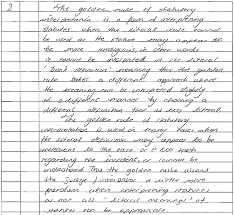 2 The golden rule of statutory
interpretation is a form of interpreting
statutes where the literal rule cannot
be used as the statute may appear to
be more ambiguous, in other words
it cannot be interpreted in its literal
'Dont definition' meaning that the golden
rule takes a different approach where
the meaning can be interpreted slightly
in a different manner by choosing a
different definition that is less literal.
The golden rule of statutory
interpretation is used in many cases when
the literal definition may appear to be
irrelevant to the case or it has
regarding the incident, or cannot be
understood. Thus the golden rule allows
the judge / interpreter a little more
freedom when interpreting statutes
as not all 'literal meanings' of
words can be appropriate.